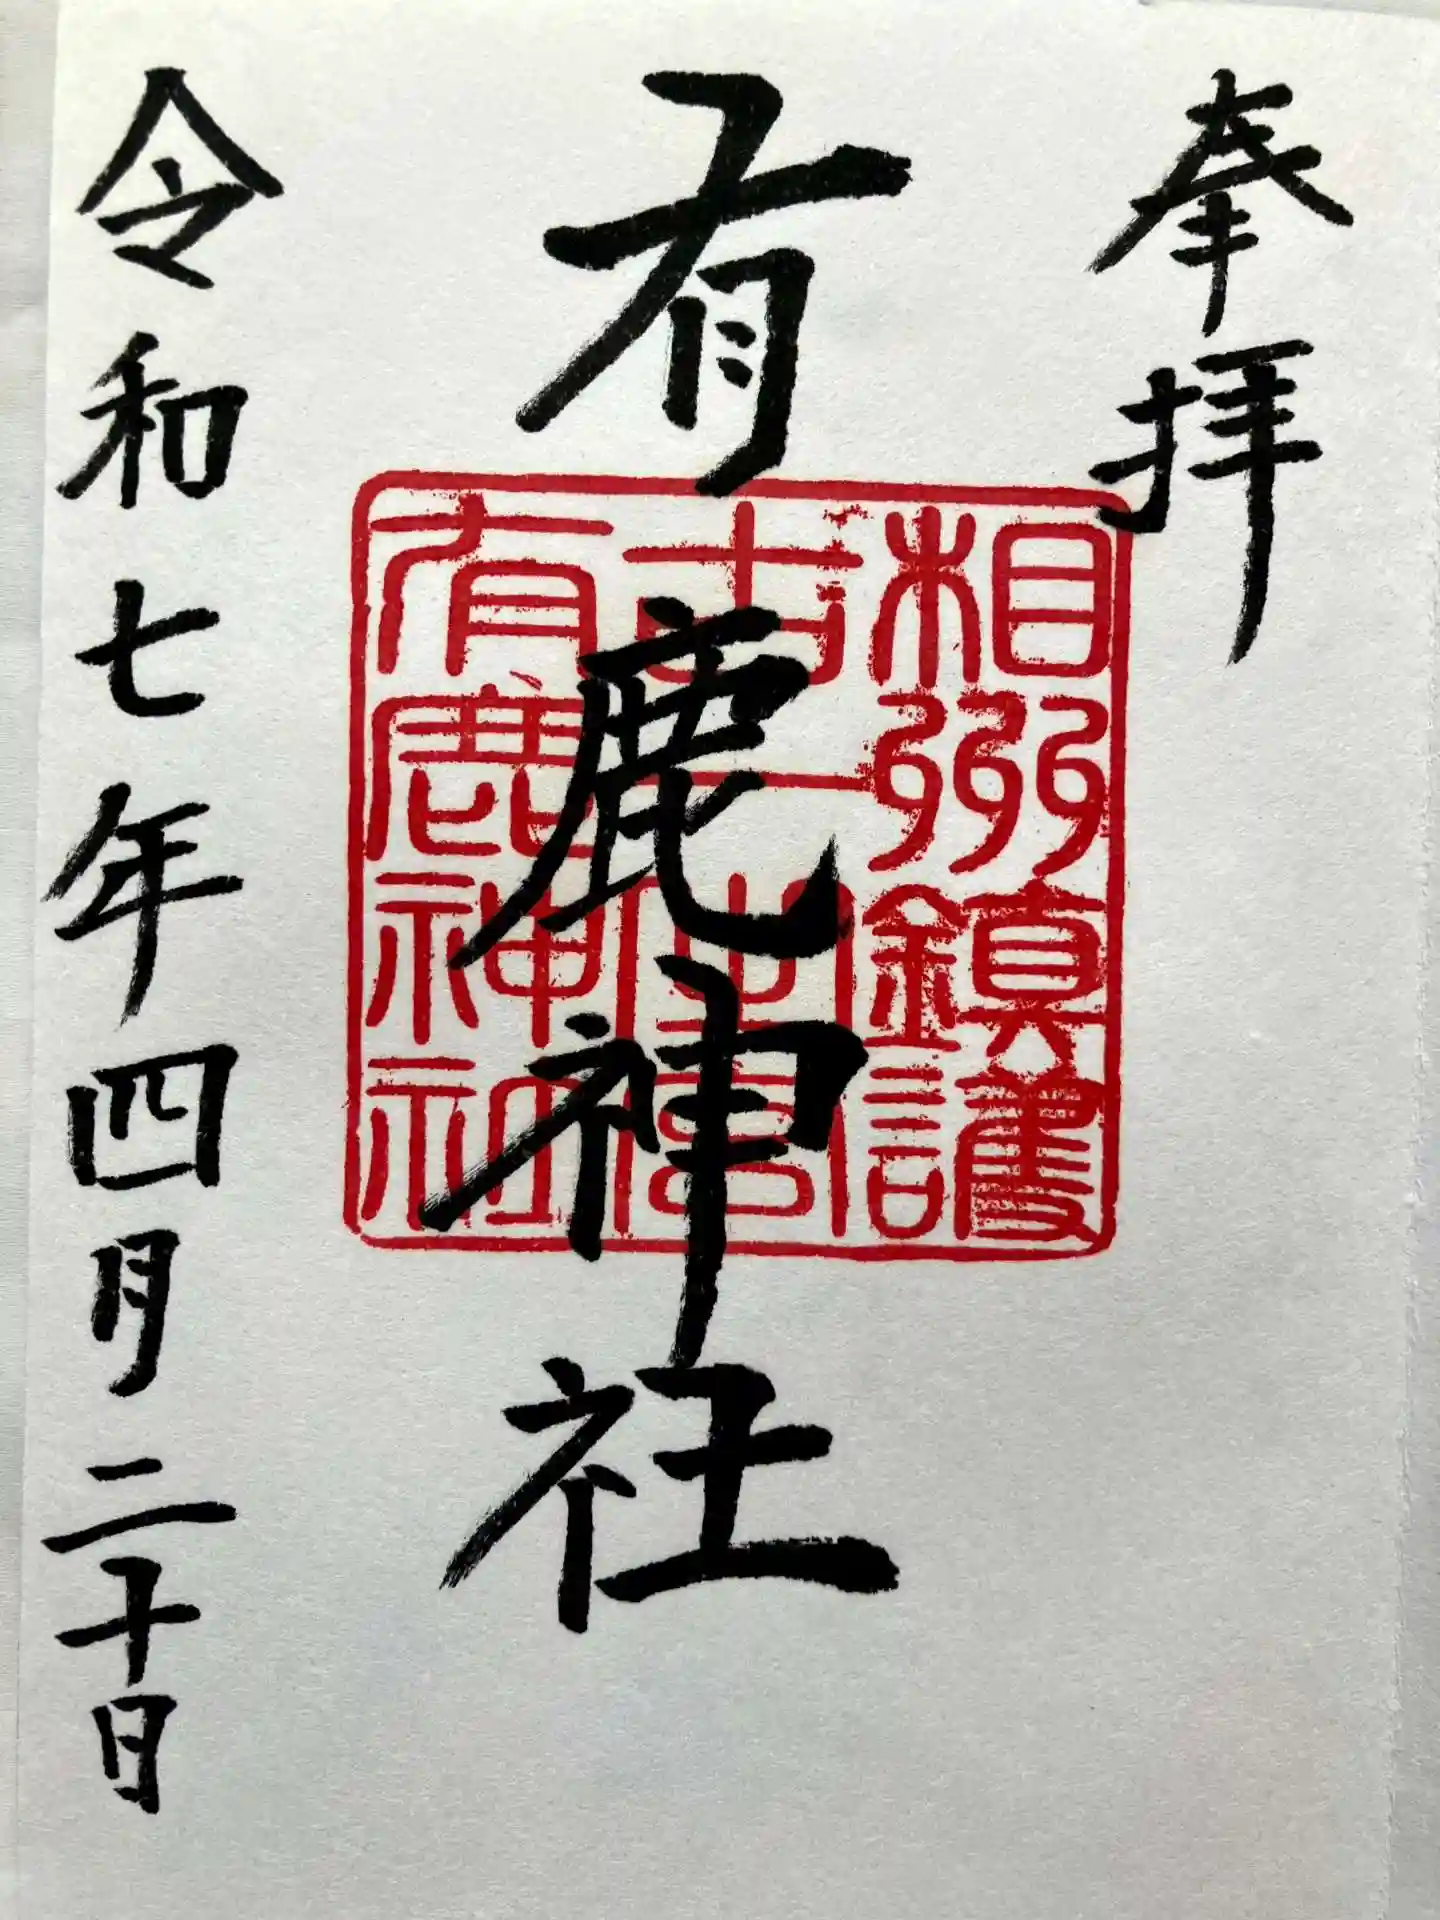 奉拝
有鹿神社
令和七年四月二十日
相州鎮護
有鹿神社